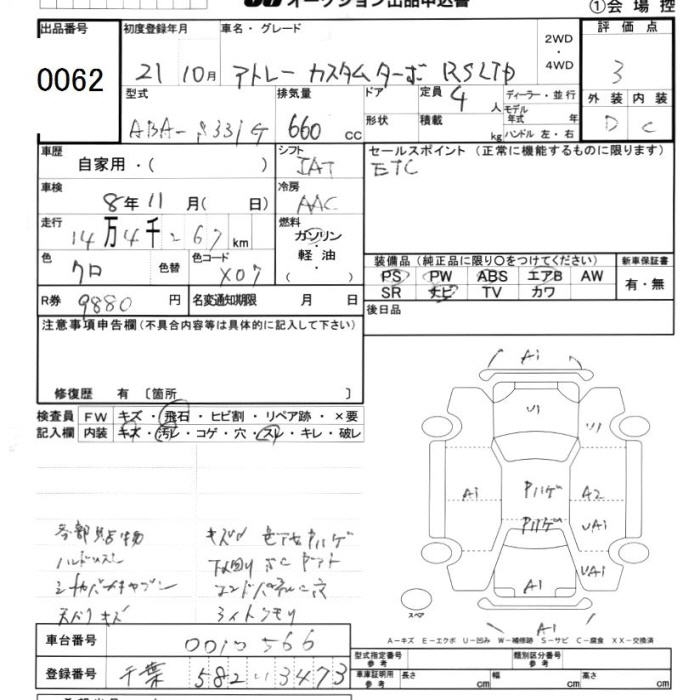 オークション出品申込書
①会場控
出品番号
0062
初度登録年月
21 10月
車名・グレード
アトレー カスタムターボ RSLTD
2WD
・
4WD
評価点
3
型式
ABA-S331G
排気量
660 cc
ドア
形状
定員 4 人
積載 kg
ディーラー・並行
モデル
年式 年
ハンドル 左・右
外装 内装
D C
車歴
自家用・( )
シフト
IAT
セールスポイント (正常に機能するものに限ります)
ETC
車検
8年11月( 日)
冷房
AAC
走行
14万4千267km
燃料
ガソリン
・
軽油
色
クロ
色替
色コード
X07
装備品 (純正品に限り〇をつけてください)
PS PW ABS エアB AW
SR ナビ TV カワ
新車保証書
有・無
R券 9880 円
名変通知期限 月 日
後日品
注意事項申告欄(不具合内容等は具体的に記入して下さい)
修復歴 有 〔箇所 〕
検査員 FW キズ・飛石・ヒビ割・リペア跡・×要
記入欄 内装 キズ・汚レ・コゲ・穴・スレ・キレ・破レ
A1
U1
U1
A1
Pハゲ
A2
Pハゲ
UA1
UA1
A1
A1
各部貼物
キズ凹 色アセPハゲ
下廻りサビ
天バリキズ
ライトクモリ
スペア
A-キズ E-エクボ U-凹み W-補修跡 S-サビ C-腐食 XX-交換済
車台番号 0010566
登録番号 千葉 582 い 3473
型式指定番号
参考
類別区分番号
参考
車庫証明用
参考
長さ cm
幅 cm
高さ cm